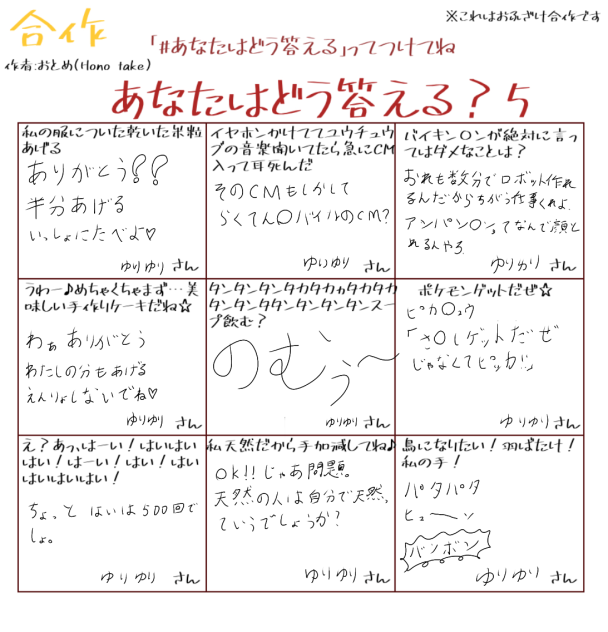 合作
※これはおふざけ合作です
「#あなたはどう答える」ってつけてね
作者:おとめ(Hono take)
あなたはどう答える?5
私の服についた乾いた米粒
あげる
ありがとう!?!?
半分あげる
いっしょにたべよ♡
ゆりゆり さん
イヤホンかけててユウチュウ
ブの音楽聞いてたら急にCM
入って耳死んだ
そのCMもしかして
らくてん〇バイルのCM?
ゆりゆり さん
バイキン〇ンが絶対に言っ
てはダメなことは?
おれも数分でロボット作れ
るんだからちがう仕事くれよ.
アンパン〇ンってなんで顔と
れるんやろ.
ゆりゆり さん
うわー♪めちゃくちゃまず…美
味しい手作りケーキだね☆
わぁ ありがとう
わたしの分もあげる
えんりょしないでね♡
ゆりゆり さん
タンタンタンタカタカカタカタカ
タンタンタタンタンタンタンスー
プ飲む?
のむぅ〜
ゆりゆり さん
ポケモンゲットだぜ☆
ピカ〇ュウ
「さ〇しゲットだぜ
じゃなくてピッカ!!」
ゆりゆり さん
え?あっ、はーい!はいはい
はい!はーい!はい!はい
はいはいはい!
ちょっと はいは500回で
しょ。
ゆりゆり さん
私天然だから手加減してね♪
OK!!じゃあ問題。
天然の人は自分で天然。
ていうでしょうか?
ゆりゆり さん
鳥になりたい!羽ばたけ!
私の手!
パタパタ
ヒューーン
バンボン
ゆりゆり さん